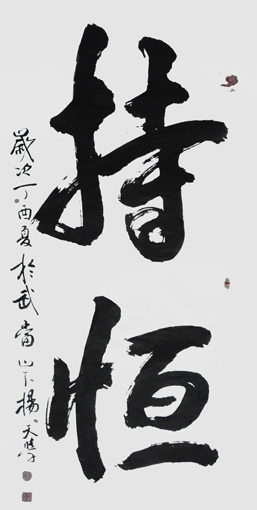 持恒
歲次丁酉夏於武當山下楊天